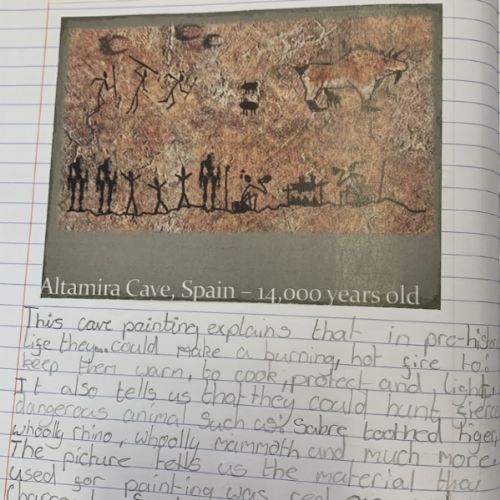 Altamira Cave, Spain – 14,000 years old
This cave painting explains that in pre-histor
life they could make a burning, hot fire to:
keep them warm, to cook, protect and light.
It also tells us that they could hunt
dangerous animal such as: Sabre toothed tiger,
whoolly rhino, whoolly mammoth and much more.
The picture tells us the material they
used for painting was
Charcoal